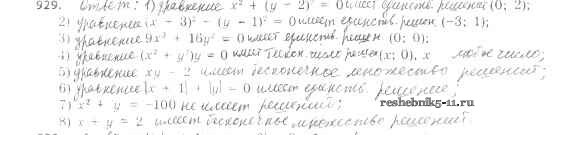 929. Ответ: 1) уравнение x² + (y − 2)² = 0 имеет единств. решение (0; 2);
2) уравнение (x + 3)² − (y − 1)² = 0 имеет единств. решен (−3; 1);
3) уравнение 9x² + 16y² = 0 имеет единств. решен (0; 0);
4) уравнение (x² + y²)y = 0 имеет бескон. число решен (x; 0), x любое число;
5) уравнение xy − 2 имеет бесконечное множество решений;
6) уравнение |x + 1| + |y| = 0 имеет единств. решение;
7) x² + y = −100 не имеет решений;
reshebnik5-11.ru
8) x + y = 2 имеет бесконечное множество решений.